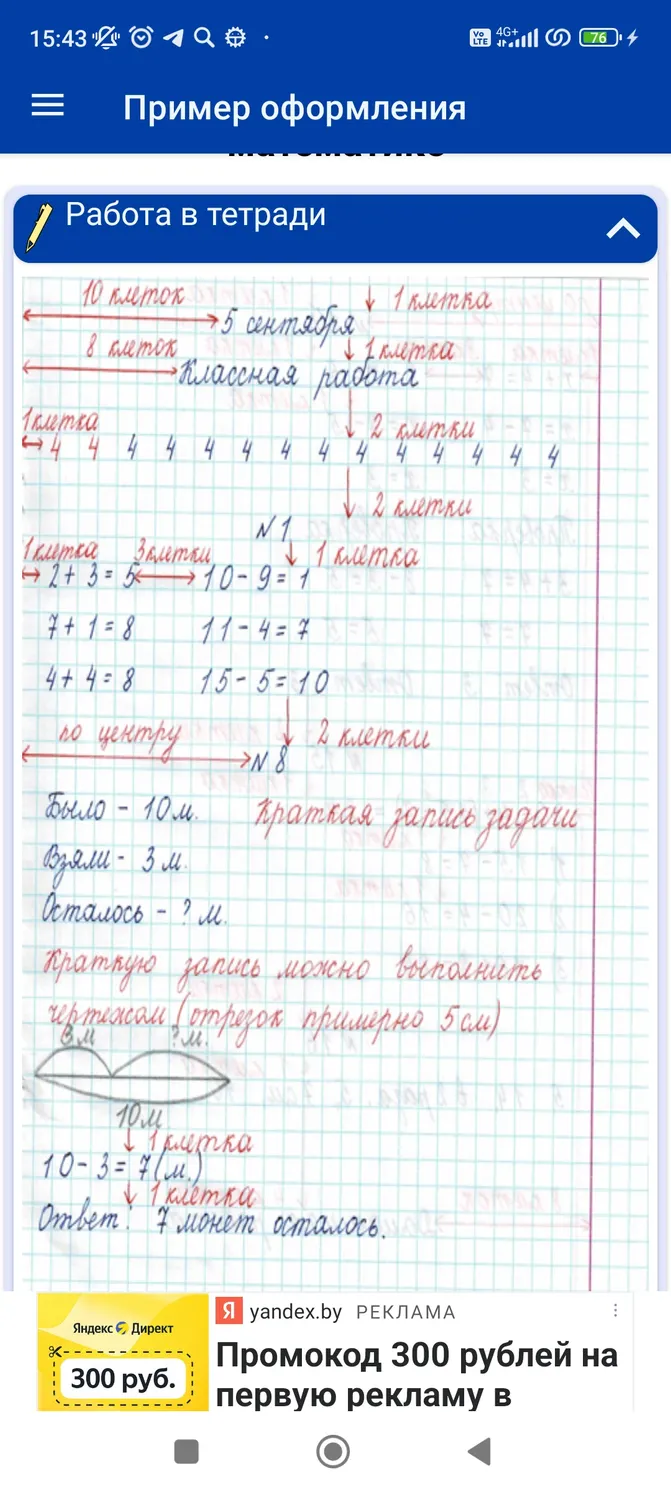 15:43 Vo LTE 4G+ 76
Пример оформления
математике
Работа в тетради
10 клеток 1 клетка
5 сентября
8 клеток 1 клетка
Классная работа
1клетка 2 клетки
4 4 4 4 4 4 4 4 4 4 4 4 4 4
2 клетки
N 1
1клетка 3клетки 1 клетка
2 + 3 = 5 10 - 9 = 1
7 + 1 = 8 11 - 4 = 7
4 + 4 = 8 15 - 5 = 10
по центру 2 клетки
N 8
Было - 10 м. Краткая запись задачи
Взяли - 3 м.
Осталось - ? м.
Краткую запись можно выполнить
чертежом (отрезок примерно 5 см)
3м ?м.
10м
1 клетка
10 - 3 = 7 (м.)
1 клетка
Ответ: 7 монет осталось.
Яндекс Директ
300 руб.
Я yandex.by РЕКЛАМА
Промокод 300 рублей на
первую рекламу в